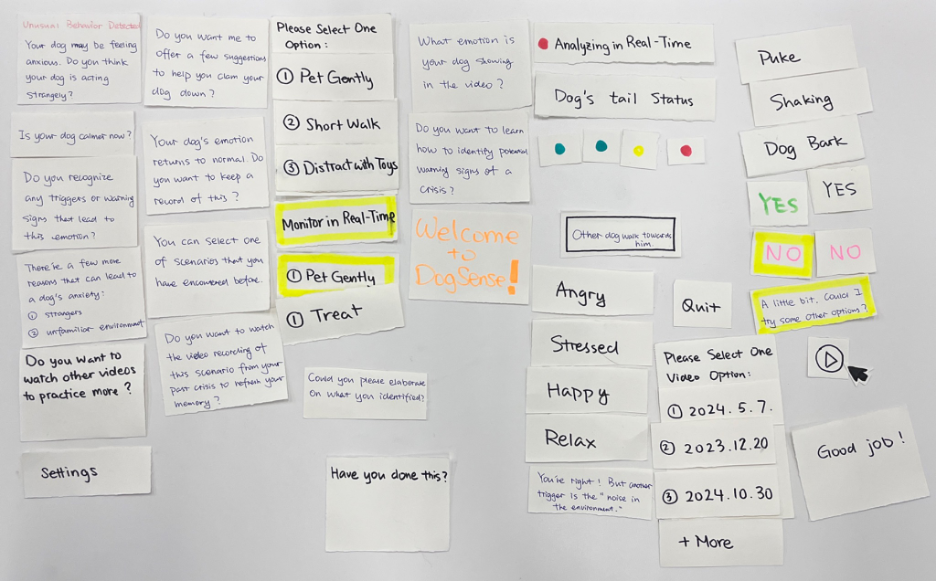 Unusual Behavior Detected
Your dog may be feeling
anxious. Do you think
your dog is acting
strangely?
Is your dog calmer now?
Do you recognize
any triggers or warning
signs that lead to
this emotion?
There're a few more
reasons that can lead to
a dog's anxiety:
① strangers
② unfamiliar environment
Do you Want to
watch other videos
to practice more?
Settings
Do you want me to
offer a few suggestions
to help you clam your
dog down?
Your dog's emotion
returns to normal. Do
you want to keep a
record of this?
You can select one
of scenarios that you
have encountered before.
Do you want to watch
the video recording of
this scenario from your
past crisis to refresh your
memory?
Please Select One
Option:
① Pet Gently
② Short Walk
③ Distract with Toys
Monitor in Real-Time
① Pet Gently
① Treat
Could you please elaborate
on what you identified?
Have you done this?
What emotion is
your dog showing
in the video?
Do you want to learn
how to identify potential
warning signs of a
crisis?
Welcome
to
DogSense!
Analyzing in Real-Time
Dog's tail Status
Other dog walk towards
him
Angry
Stressed
Happy
Relax
You're right! But another
trigger is the "noise in
the environment."
Quit
Please Select One
Video Option:
① 2024.5.7.
② 2023.12.20
③ 2024.10.30
+ More
Puke
Shaking
Dog Bark
YES
YES
NO
NO
A little bit. Could I
try some other options?
Good job!